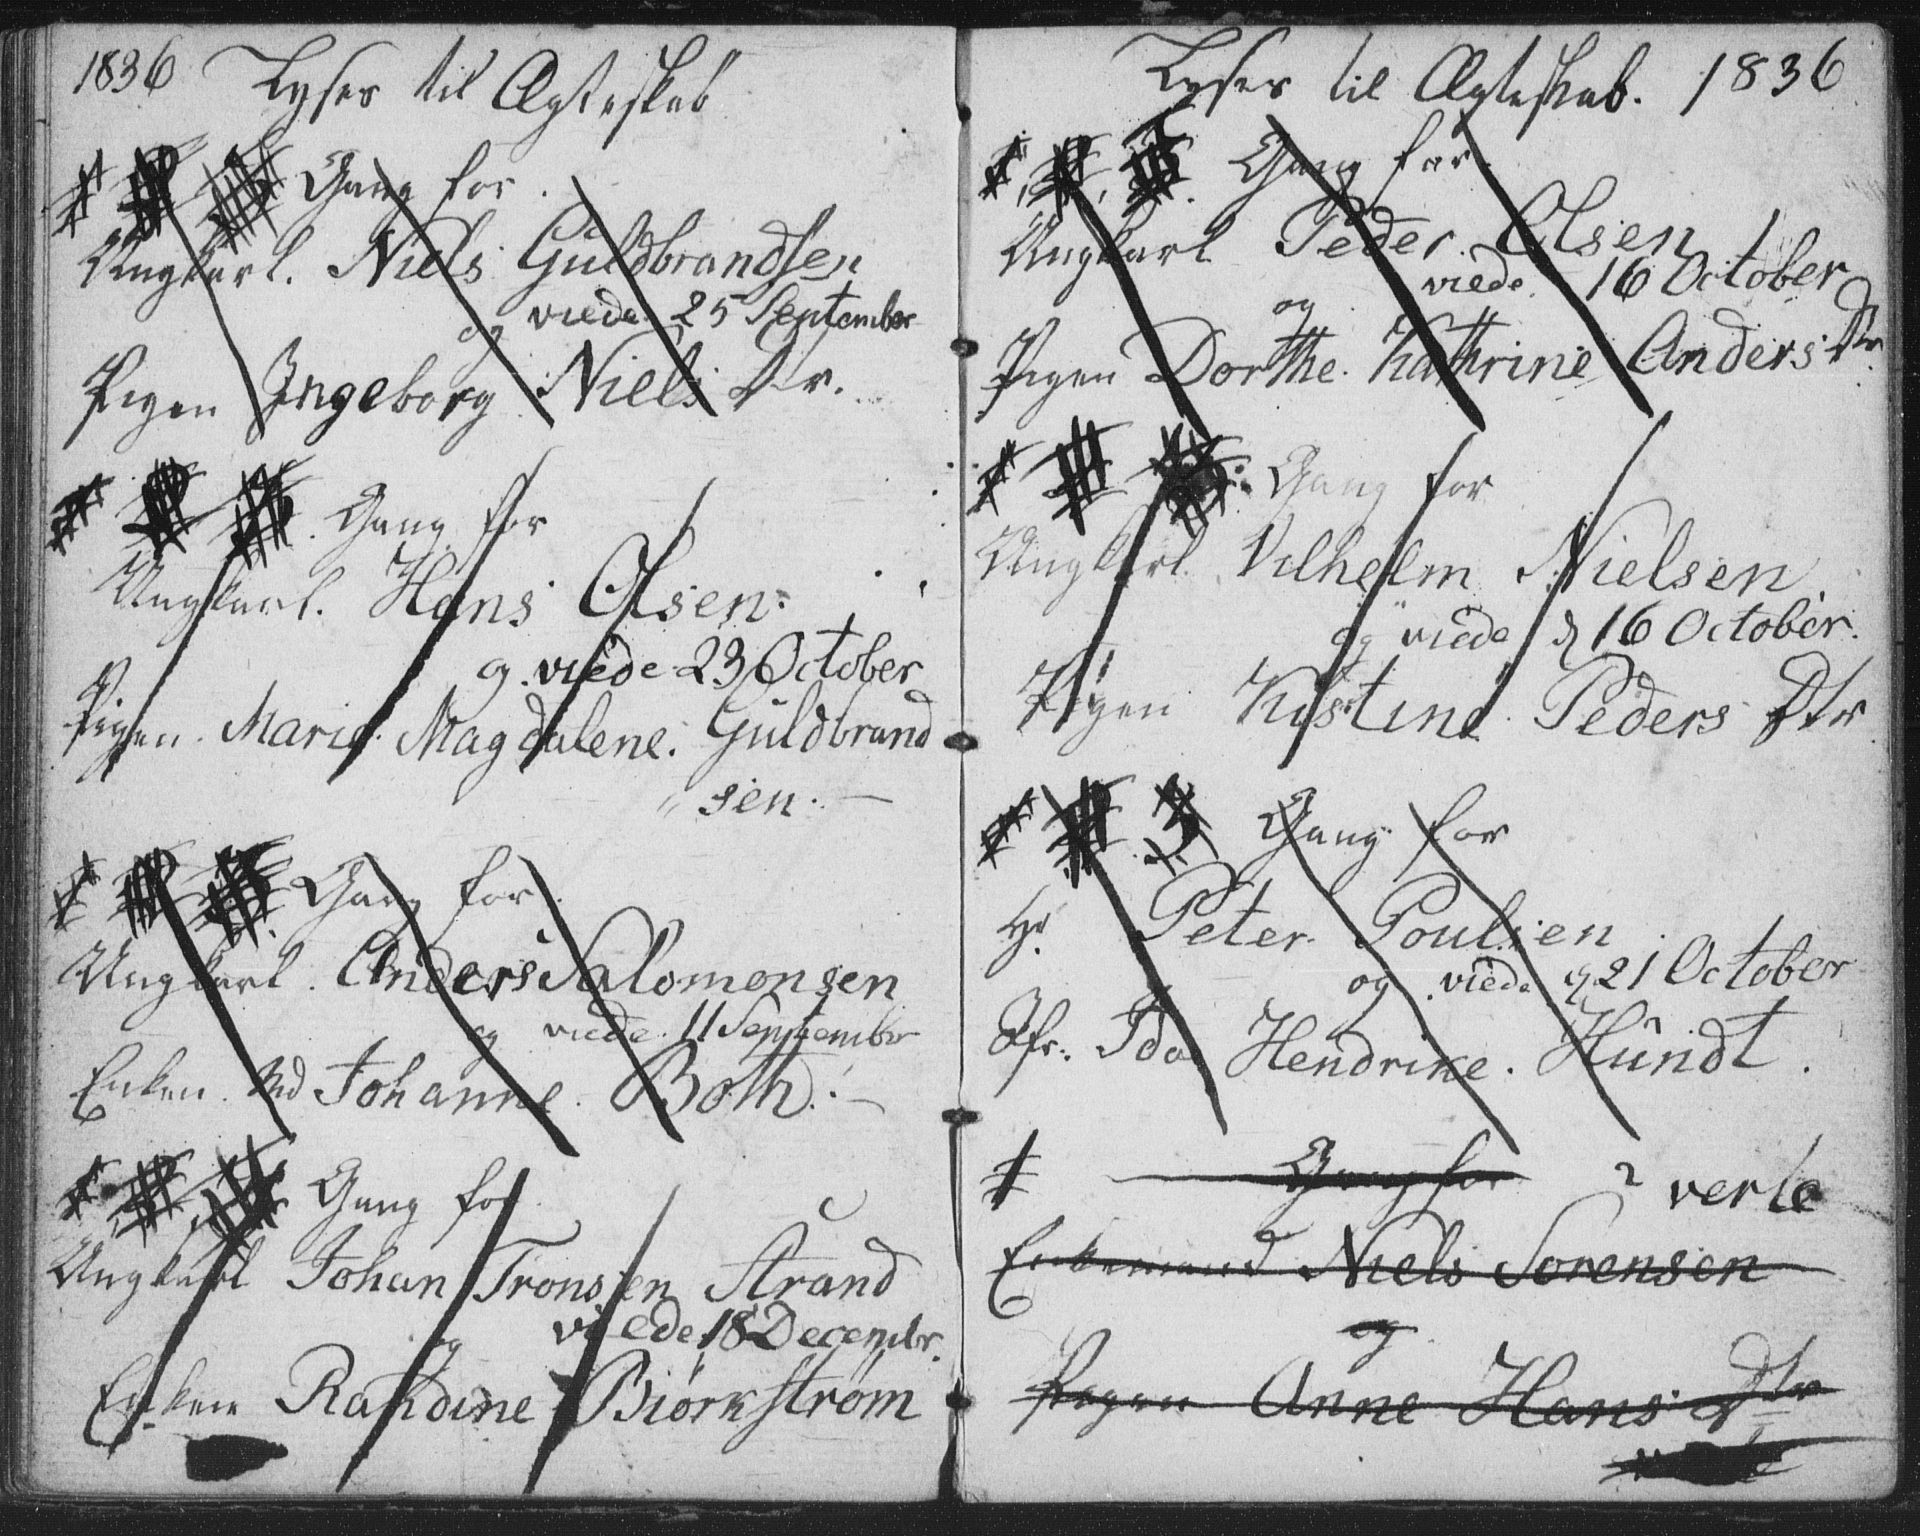 1836 Lyses til Ægteskab
Gang for
Ungkarl. Niels Guldbrandsen
og viede 25 September
Pigen Ingeborg Niels Dr.
Gang for
Ungkarl. Hans Olsen.
og viede 23 October
Pigen Marie Magdalene. Guldbrand
" sen. —
Gang for
Ungkarl. Anders Salomonsen
og viede 11 September
Enken Md Johanne Both. —
Gang for
Ungkarl Johan Tronssen Strand
og viede 18 Decembr.
Enken Randine Biørkstrøm
Lyses til Ægteskab. 1836
Gang for
Ungkarl Peder Olsen
og viede 16 October
Pigen Dorthe Kathrine Anders Dr
Gang for
Ungkarl Vilhelm Nielsen
og viede d 16 October.
Pigen Kistine Peders Dtr
3 Gang for
Hr. Peter Poulsen
og viede d 21 October
Jfr. Ida Hendrike. Hundt.
Gang for 2 verte
Enkemand Niels Sorensen
og
Pigen Anne Hans Dtr